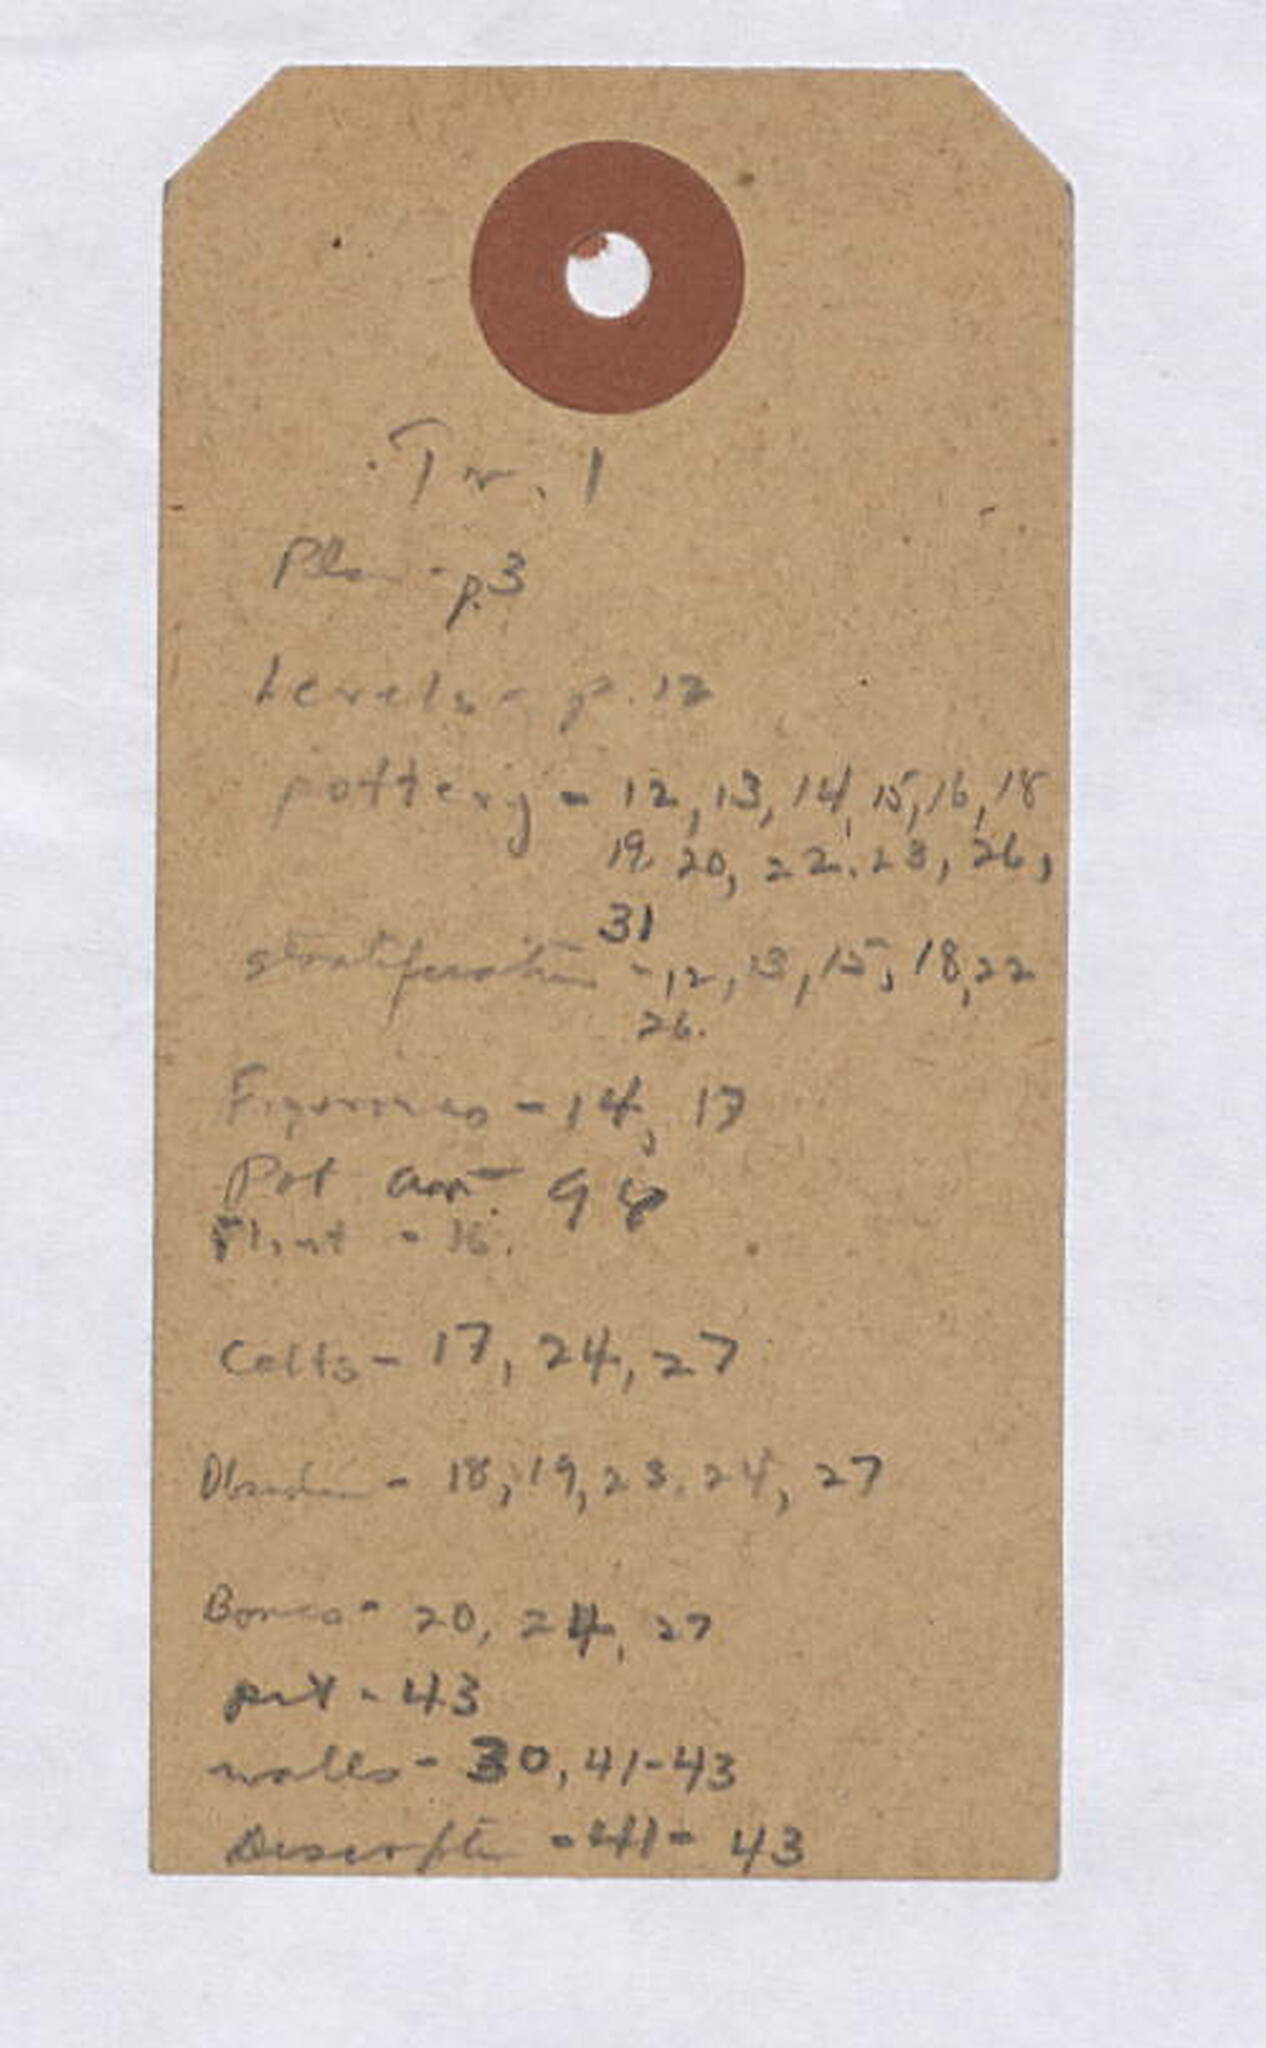 Tr. 1
Plan - p.3
Levels - p. 12
pottery - 12, 13, 14, 15, 16, 18
19, 20, 22, 23, 26,
31
stratification - 12, 13, 15, 18, 22
26.
Figurines - 14, 17
Pot
Flint - 16.
Celts - 17, 24, 27
Obsidian - 18, 19, 23, 24, 27
Bones - 20, 24, 27
pit - 43
walls - 30, 41-43
Descriptn - 41 - 43